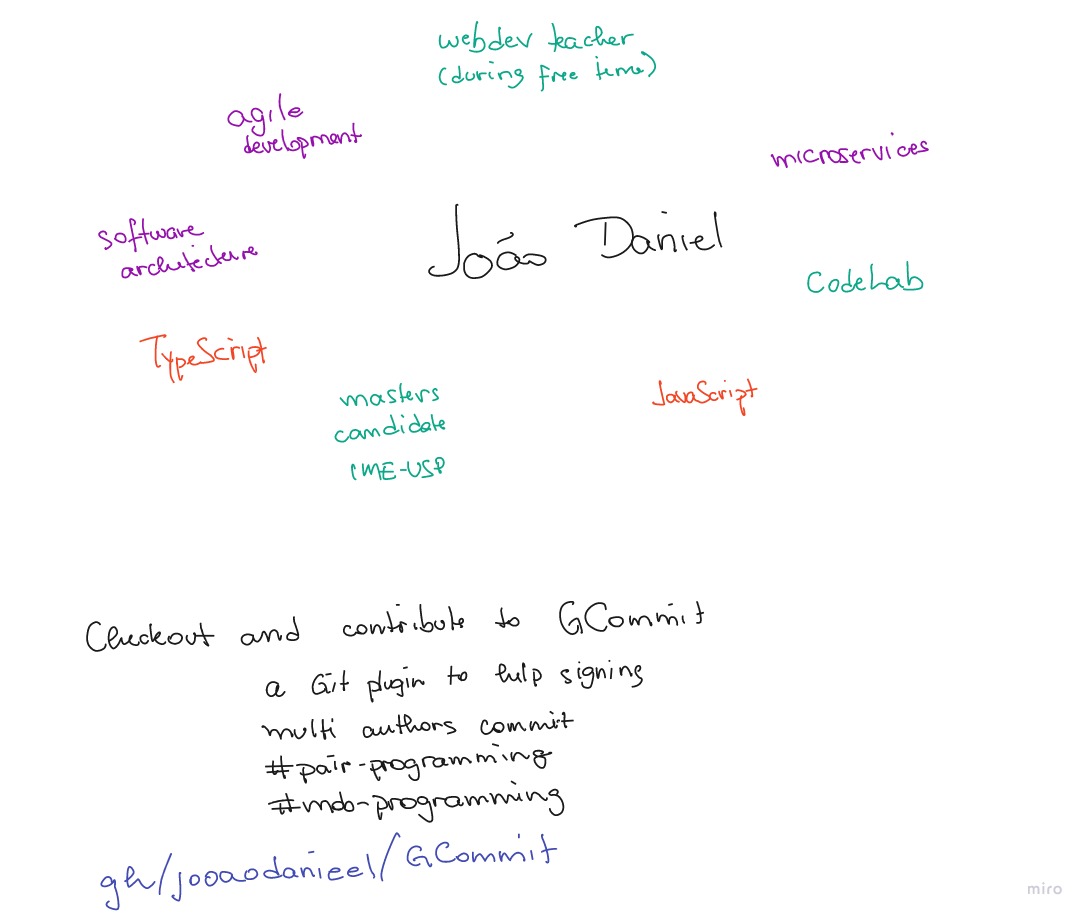 webdev teacher
(during free time)
agile
development
microservices
software
architecture
João Daniel
CodeLab
TypeScript
masters
candidate
IME-USP
JavaScript
Checkout and contribute to GCommit
a Git plugin to help signing
multi authors commit
#pair-programming
#mob-programming
gh/jooaodanieel/GCommit
miro